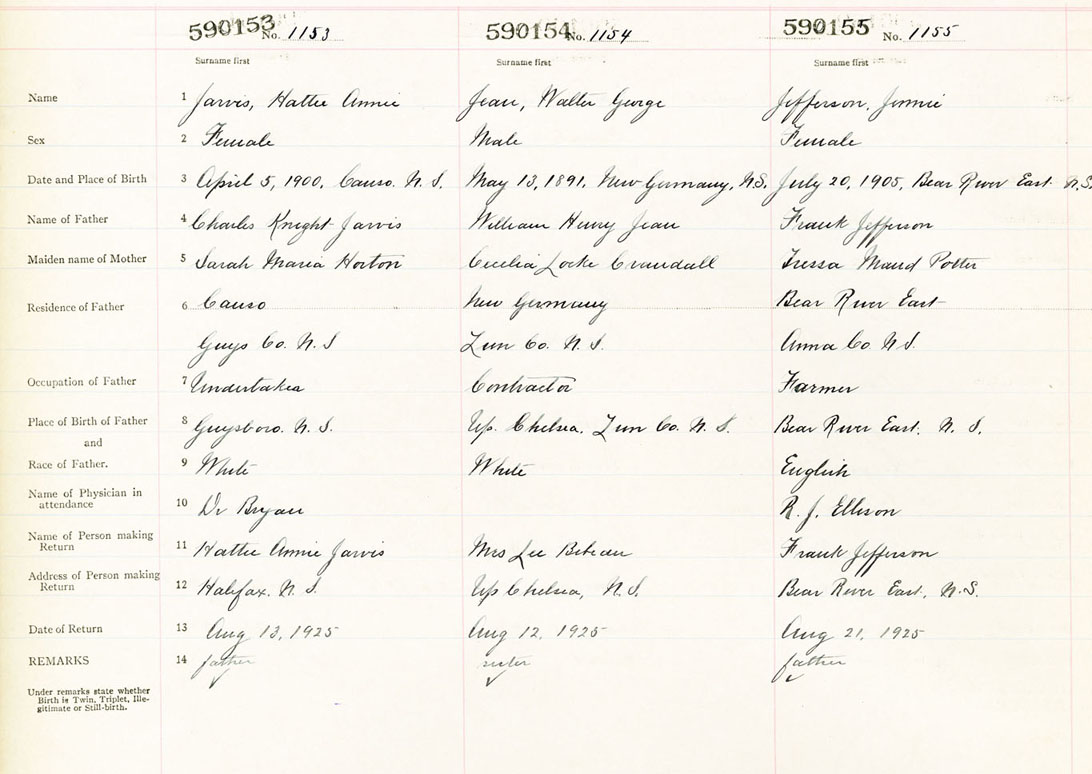 590153 No. 1153 590154 No. 1154 590155 No. 1155
Surname first Surname first Surname first
Name 1 Jarvis, Hattie Annie Jean, Walter George Jefferson, Jennie
Sex 2 Female Male Female
Date and Place of Birth 3 April 5, 1900, Canso. N. S. May 13, 1891, New Germany, N.S. July 20, 1905, Bear River East N.S.
Name of Father 4 Charles Knight Jarvis William Henry Jean Frank Jefferson
Maiden name of Mother 5 Sarah Maria Horton Cecelia Locke Crandall Tressa Maud Potter
Residence of Father 6 Canso New Germany Bear River East
Guys Co. N. S Lun Co. N. S. Anna Co N.S.
Occupation of Father 7 Undertaker Contractor Farmer
Place of Birth of Father 8 Guysboro. N. S. Up. Chelsea, Lun Co. N. S. Bear River East, N. S.
and
Race of Father. 9 White White English
Name of Physician in
attendance 10 Dr Bryan R. J. Ellison
Name of Person making
Return 11 Hattie Annie Jarvis Mrs Lee Frank Jefferson
Address of Person making
Return 12 Halifax. N. S. Up Chelsea, N.S. Bear River East, N.S.
Date of Return 13 Aug 13, 1925 Aug 12, 1925 Aug 21, 1925
REMARKS 14 father sister father
Under remarks state whether
Birth is Twin, Triplet, Ille-
gitimate or Still-birth.